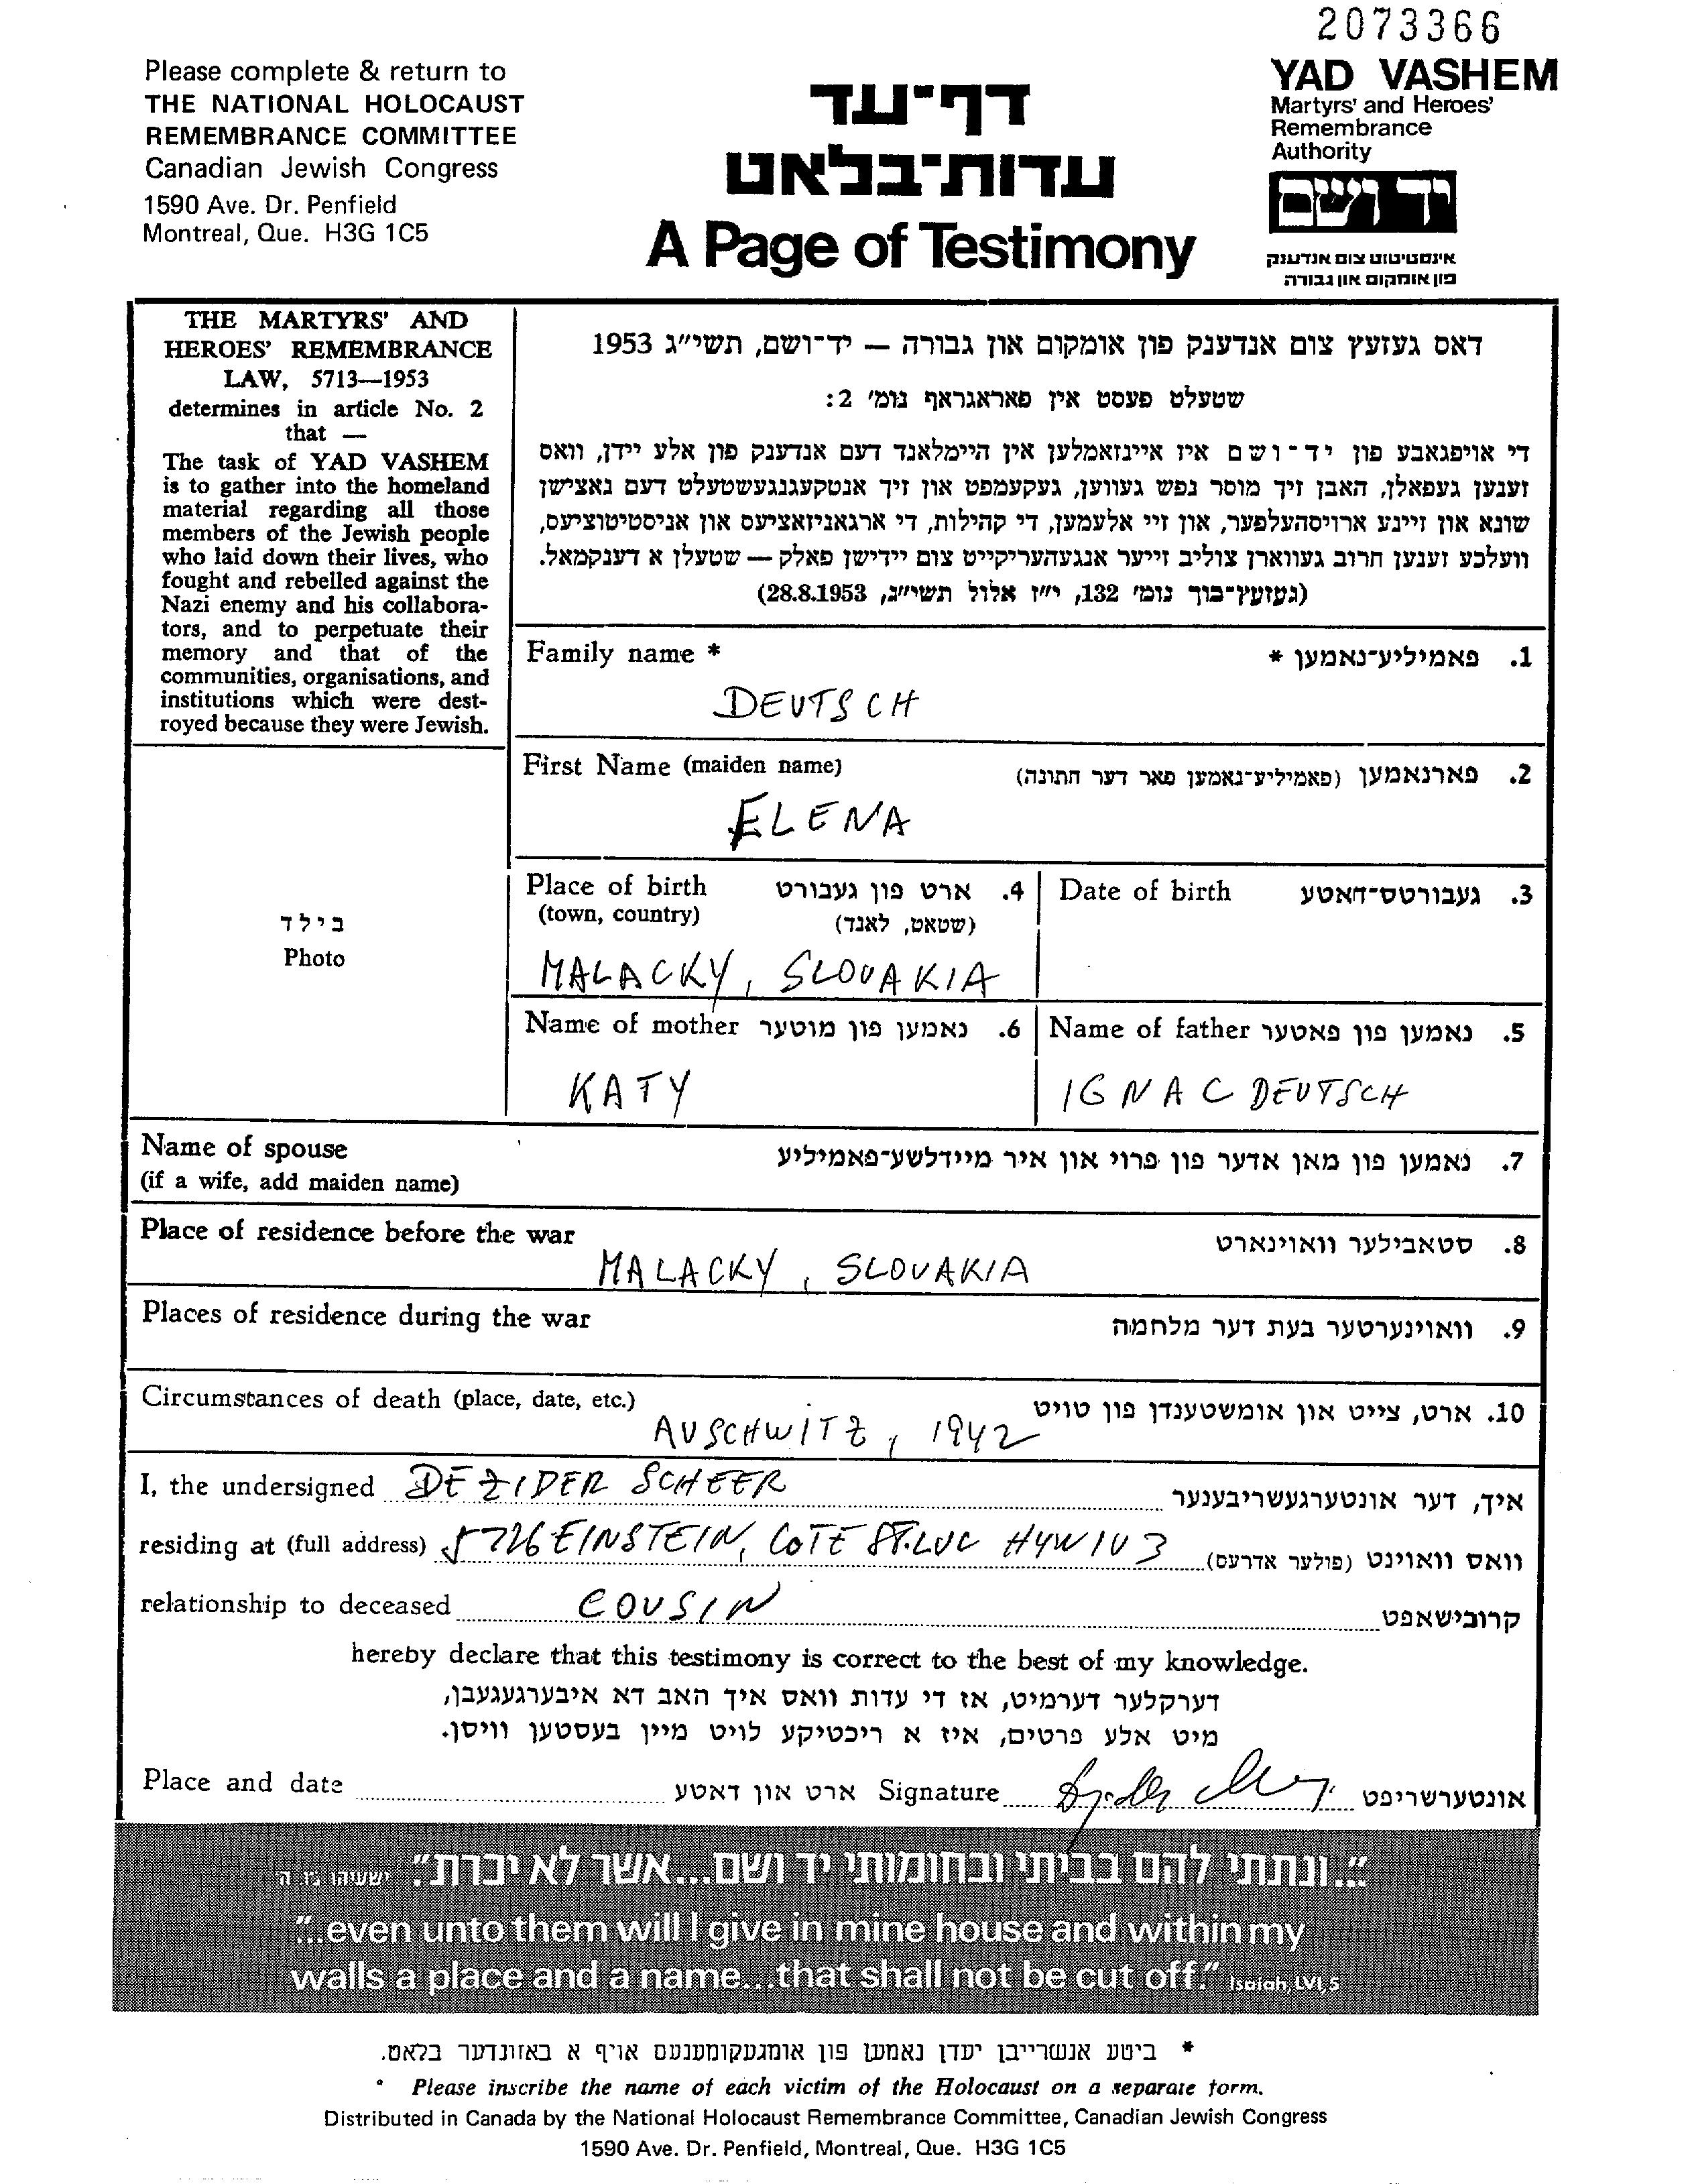 2073366
Please complete & return to
THE NATIONAL HOLOCAUST
REMEMBRANCE COMMITTEE
Canadian Jewish Congress
1590 Ave. Dr. Penfield
Montreal, Que. H3G 1C5
דף־עד
עדות־בלאט
A Page of Testimony
YAD VASHEM
Martyrs' and Heroes'
Remembrance
Authority
יד ושם
אינסטיטוט צום אנדענק
פון אומקום און גבורה
THE MARTYRS' AND
HEROES' REMEMBRANCE
LAW, 5713—1953
determines in article No. 2
that —
The task of YAD VASHEM
is to gather into the homeland
material regarding all those
members of the Jewish people
who laid down their lives, who
fought and rebelled against the
Nazi enemy and his collabora-
tors, and to perpetuate their
memory and that of the
communities, organisations, and
institutions which were dest-
royed because they were Jewish.
דאס געזעץ צום אנדענק פון אומקום און גבורה — יד־ושם, תשי״ג 1953
שטעלט פעסט אין פאראגראף נומ׳ 2:
די אויפגאבע פון יד־ושם איז איינזאמלען אין היימלאנד דעם אנדענק פון אלע יידן, וואס
זענען געפאלן, האבן זיך מוסר נפש געווען, געקעמפט און זיך אנטקעגנגעשטעלט דעם נאצישן
שונא און זיינע ארויסהעלפער, און זיי אלעמען, די קהילות, די ארגאניזאציעס און אניסטיטוציעס,
וועלכע זענען חרוב געווארן צוליב זייער אנגעהעריקייט צום יידישן פאלק — שטעלן א דענקמאל.
(געזעץ־בוך נומ׳ 132, י״ז אלול תשי״ג, 28.8.1953)
Family name * פאמיליע־נאמען * .1
DEUTSCH
First Name (maiden name) פארנאמען (פאמיליע־נאמען פאר דער חתונה) .2
ELENA
בילד
Photo
Place of birth ארט פון געבורט .4
(town, country) (שטאט, לאנד)
MALACKY, SLOVAKIA
Date of birth געבורטס־דאטע .3
Name of mother נאמען פון מוטער .6
KATY
Name of father נאמען פון פאטער .5
IGNAC DEUTSCH
Name of spouse נאמען פון מאן אדער פון פרוי און איר מיידלשע־פאמיליע .7
(if a wife, add maiden name)
Place of residence before the war סטאבילער וואוינארט .8
MALACKY, SLOVAKIA
Places of residence during the war וואוינערטער בעת דער מלחמה .9
Circumstances of death (place, date, etc.) ארט, צייט און אומשטענדן פון טויט .10
AUSCHWITZ, 1942
I, the undersigned DEZIDER SCHEER איך, דער אונטערגעשריבענער
residing at (full address) 5726 EINSTEIN, COTE ST.LUC H4W 1V3 וואס וואוינט (פולער אדרעס)
relationship to deceased COUSIN קרובישאפט
hereby declare that this testimony is correct to the best of my knowledge.
דערקלער דערמיט, אז די עדות וואס איך האב דא איבערגעגעבן,
מיט אלע פרטים, איז א ריכטיקע לויט מיין בעסטען וויסן.
Place and date ארט און דאטע Signature אונטערשריפט
״...ונתתי להם בביתי ובחומותי יד ושם...אשר לא יכרת״. ישעיהו נ״ו ה
"...even unto them will I give in mine house and within my
walls a place and a name...that shall not be cut off." Isaiah, LVI, 5
* ביטע אנשרייבן יעדן נאמען פון אומגעקומענעם אויף א באזונדער בלאט.
* Please inscribe the name of each victim of the Holocaust on a separate form.
Distributed in Canada by the National Holocaust Remembrance Committee, Canadian Jewish Congress
1590 Ave. Dr. Penfield, Montreal, Que. H3G 1C5